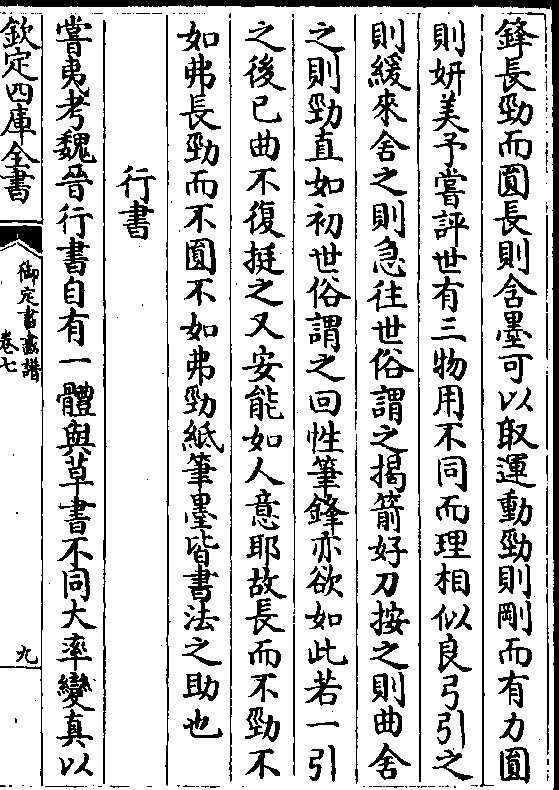 鋒長勁而圓長則含墨可以取運動勁則剛而有力圓
則妍美予嘗評世有三物用不同而理相似良弓引之
則緩來舍之則急往世俗謂之揭箭好刀按之則曲舍
之則勁直如初世俗謂之回性筆鋒亦欲如此若一引
之後已曲不復挺之又安能如人意耶故長而不勁不
如弗長勁而不圓不如弗勁紙筆墨皆書法之助也
行書
嘗夷考魏晉行書自有一體與草書不同大率變真以
欽定四庫全書
御定書畫譜
卷七
九